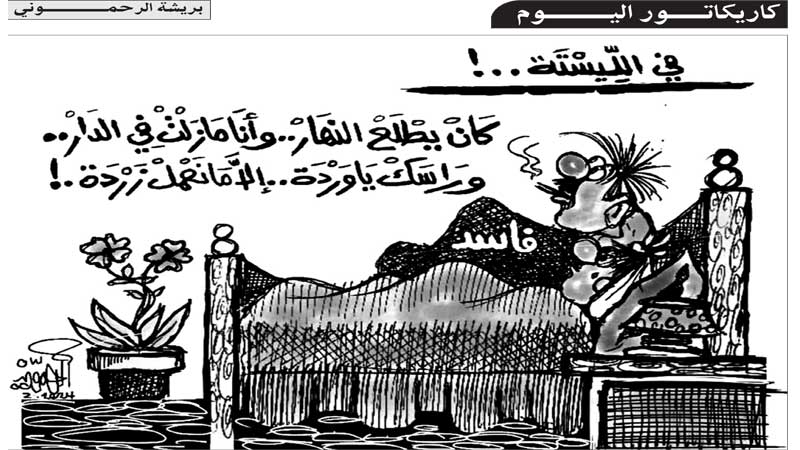 كاريكاتور اليوم
بريشة الرحموني
في اللِّيسْتَة ..!
كَانْ يِطْلَعْ النهَارْ.. وأنَا مَازَلْتْ فِي الدَارْ..
وَرَاسِكْ يَا وَرْدَة.. إلاَّ مَا نَعْمَلْ زَرْدَة.!
فاسد